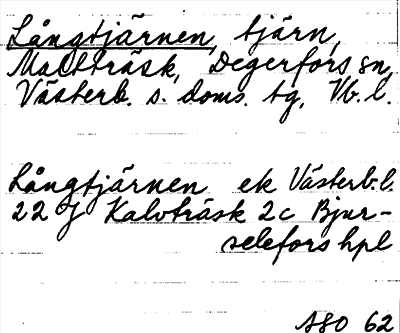 Långtjärnen, tjärn,
Maltträsk, Degerfors sn,
Västerb. s. doms. tg, Vb. l.
Långtjärnen ek Västerb. l.
22 J Kalvträsk 2c Bjur-
selefors hpl
ASO 62